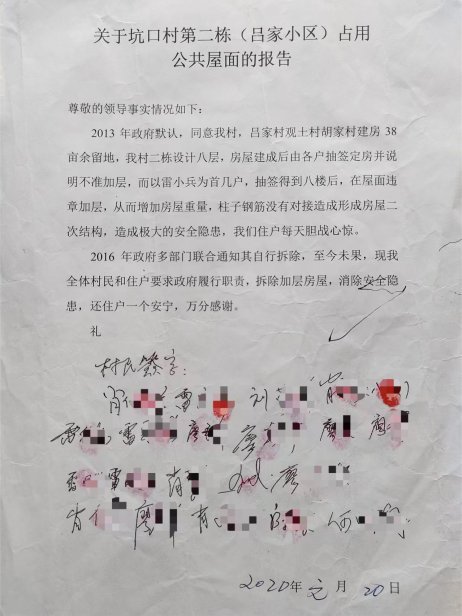 关于坑口村第二栋（吕家小区）占用
公共屋面的报告
尊敬的领导事实情况如下：
2013 年政府默认，同意我村，吕家村观土村胡家村建房 38
亩余留地，我村二栋设计八层，房屋建成后由各户抽签定房并说
明不准加层，而以雷小兵为首几户，抽签得到八楼后，在屋面违
章加层，从而增加房屋重量，柱子钢筋没有对接造成形成房屋二
次结构，造成极大的安全隐患，我们住户每天胆战心惊。
2016 年政府多部门联合通知其自行拆除，至今未果，现我
全体村民和住户要求政府履行职责，拆除加层房屋，消除安全隐
患，还住户一个安宁，万分感谢。
礼
村民签字：
雷 刘
雷 雷 廖 廖 廖
雷 廖
廖 何
2020年 元 月 20日